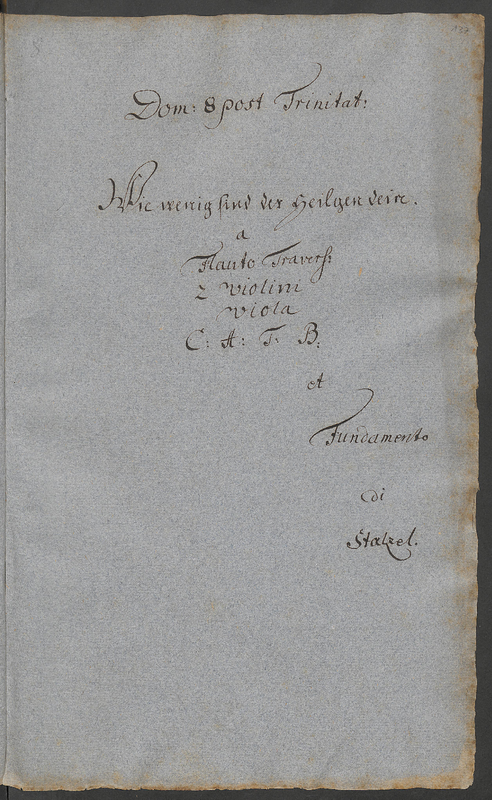 Dom: 8 post Trinitat:
Wie wenig sind der Heilgen dein.
a
Flauto Travers:
2 Violini
Viola
C: A: T: B:
et
Fundamento
di
Stalzel.